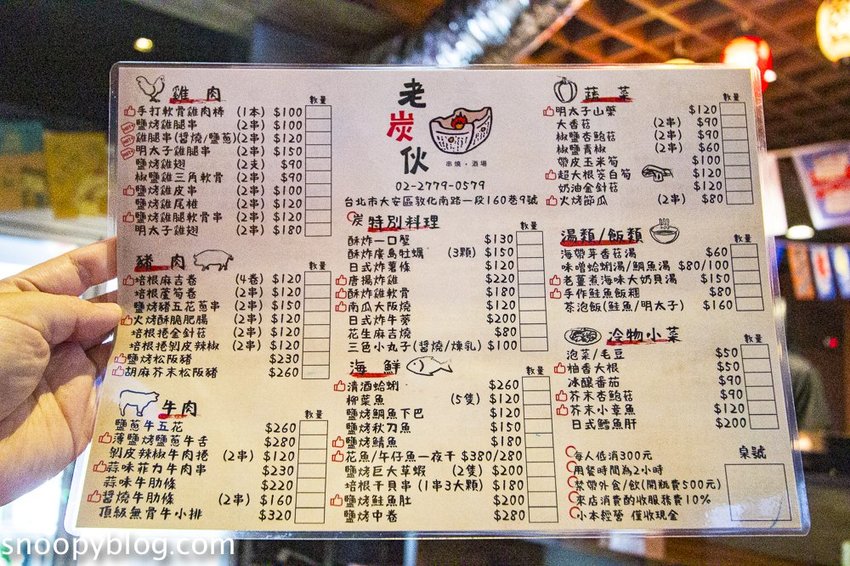 雞肉 數量
手打軟骨雞肉棒 (1本) $100
鹽烤雞腿串 (2串) $100
雞腿串(醬燒/鹽蔥)(2串) $120
明太子雞腿串 (2串) $150
鹽烤雞翅 (2支) $90
椒鹽雞三角軟骨 (2串) $90
鹽烤雞皮串 (2串) $100
鹽烤雞尾椎 (2串) $120
鹽烤雞腿軟骨串 (2串) $120
明太子雞翅 (2串) $180
豬肉 數量
培根麻吉卷 (4卷) $120
培根蘆筍卷 (2串) $120
鹽烤豬五花蔥串 (2串) $150
火烤酥脆肥腸 (2串) $120
培根捲金針菇 (2串) $120
培根捲剝皮辣椒 (2串) $120
鹽烤松阪豬 $230
胡麻芥末松阪豬 $260
牛肉 數量
鹽蔥牛五花 $260
薄鹽烤鹽蔥牛舌 $280
剝皮辣椒牛肉捲 (2串) $120
蒜味菲力牛肉串 $230
蒜味牛肋條 $220
醬燒牛肋條 (2串) $160
頂級無骨牛小排 $320
老炭伙
串燒·酒場
02-2779-0579
台北市大安區敦化南路一段160巷9號
炭特別料理 數量
酥炸一口蟹 $130
酥炸廣島牡蠣 (3顆) $150
日式炸薯條 $120
唐揚炸雞 $220
酥炸雞軟骨 $180
南瓜大阪燒 $120
日式炸牛蒡 $200
花生麻吉燒 $80
三色小丸子(醬燒/煉乳) $100
海鮮 數量
清酒蛤蜊 $260
柳葉魚 (5隻) $120
鹽烤鯛魚下巴 $120
鹽烤秋刀魚 $150
鹽烤鯖魚 $180
花魚/午仔魚一夜干 $380/280
鹽烤巨大草蝦 (2隻) $200
培根干貝串 (1串3大顆) $180
鹽烤鮭魚肚 $200
鹽烤中卷 $280
蔬菜 數量
明太子山藥 $120
大香菇 (2串) $90
椒鹽杏鮑菇 (2串) $90
椒鹽青椒 (2串) $60
帶皮玉米筍 $100
超大根筊白筍 $120
奶油金針菇 $120
火烤節瓜 (2串) $80
湯類/飯類 數量
海帶芽香菇湯 $60
味噌蛤蜊湯/鯛魚湯 $80/100
老薑煮海味大奶貝湯 $150
手作鮭魚飯糰 $80
茶泡飯(鮭魚/明太子) $160
冷物小菜 數量
泡菜/毛豆 $50
柚香大根 $50
冰釀番茄 $90
芥末杏鮑菇 $90
芥末小章魚 $120
日式鱈魚肝 $200
每人低消300元 桌號
用餐時間為2小時
禁帶外食/飲(開瓶費500元)
來店消費酌收服務費10%
小本經營 僅收現金
snoopyblog.com